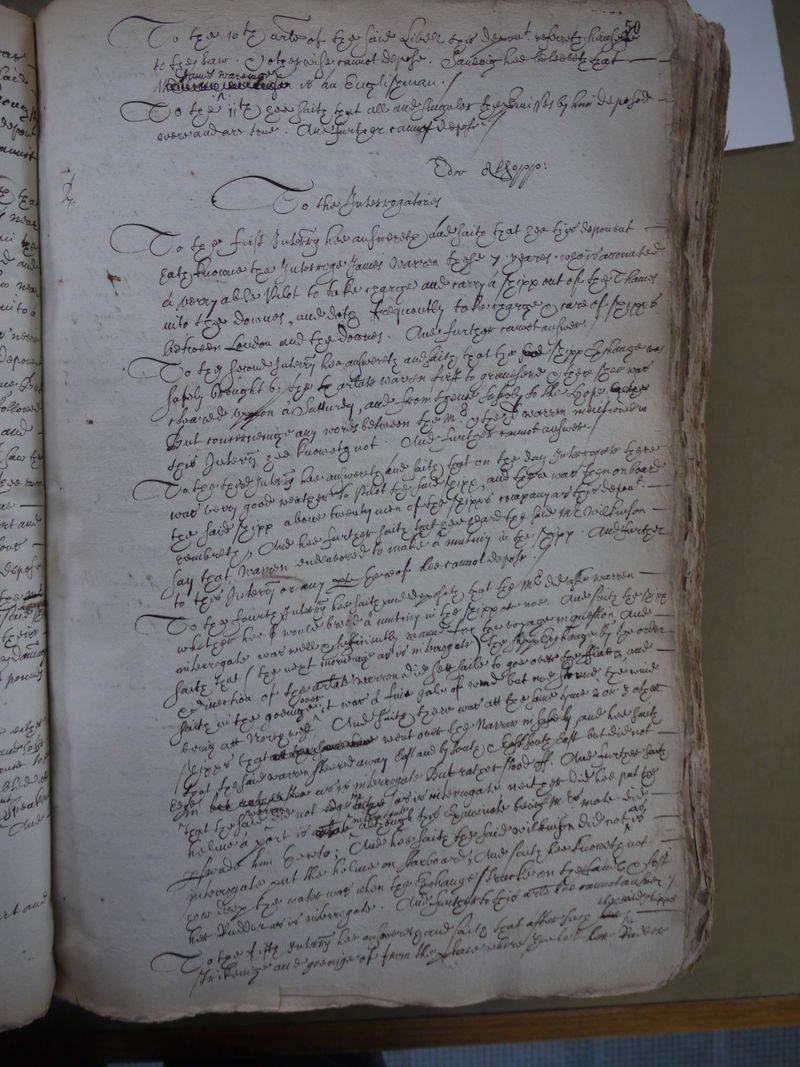 50
To the 10th arte of the said Libell this depont referreth himselfe
to the law. & otherwise cannot depose. Saveing hee beleeveth that
James Warren is an Englishman.
To the 11th hee saith that all and singuler the premisses by him deposed
were and are true. And further cannot depose.
Edw Allopp:
To the Interrogatories
To the first Interry hee answereth and saith that hee this deponent
hath knowne the Interroge James Warren these 7 yeares. who is accounted
a very able Pilot to take charge and carry a shipp out of the Thames
into the Downes, and doth frequently take charge & care of shipps
between London and the Downes. And further cannot answer
To the second Interry hee answereth and saith that the said shipp Exchange was
safely brought by the arlate Warren first to gravesend & there shee was
cleared upon a Satturday, and from thence safely to the hope
But concerneinge any words between the Mr & the sd Warren mentioned in
this Interry hee knoweth not. And further cannot answer.
To the third Interry hee answereth and saith that on the day Interrogate there
was very good weather to Pilot the said shipp, and there was then onboard
the said shipp above twenty men of the shipps company as this depont
remembreth, And hee further saith that hee heard the said Mr Wilkinson
say that Warren endeavored to make a mutiny in the shipp. And further
to this Interry or any parte thereof hee cannot depose.
To the fourth Interry hee saith and deposeth that the Mr did aske Warren
whether hee would breed a mutiny in the shipp or noe. And saith the shipp
interrogate was well & sufficiently mann'd for the voyage in question And
saith that (the next morneinge as is interrogate) the shipp Exchange by the order
& direction of the arlate Warren did sett saile to goe over the flatts, and
saith in the goeinge over it was a faire gale of wind but noe storme, the wind
being att North west. And saith there was att the same tyme 2 or 3 other
shipps that went over the Narrow in safety, and hee saith
that the said Warren steered away East and by South & East South East but did not
edge in as is interrogate But rather stood off. And further saith
that the said Warren did not as is interrogate neither did hee put the
helme a port as is interrogate although this Examinate being Mrs mate did
perswade him thereto: And hee saith the said Wilkinson did not as is
interrogate put the helme on starboard; And saith hee knoweth not
how deep the water was when the Exchange strucke on the sand & lost
her Rudder as is interrogate. And further to this arte hee cannot answer
To the fifth Interry hee answereth and saith that after the said shipps
strikeinge and goeinge of from the place where shee lost her Rudder